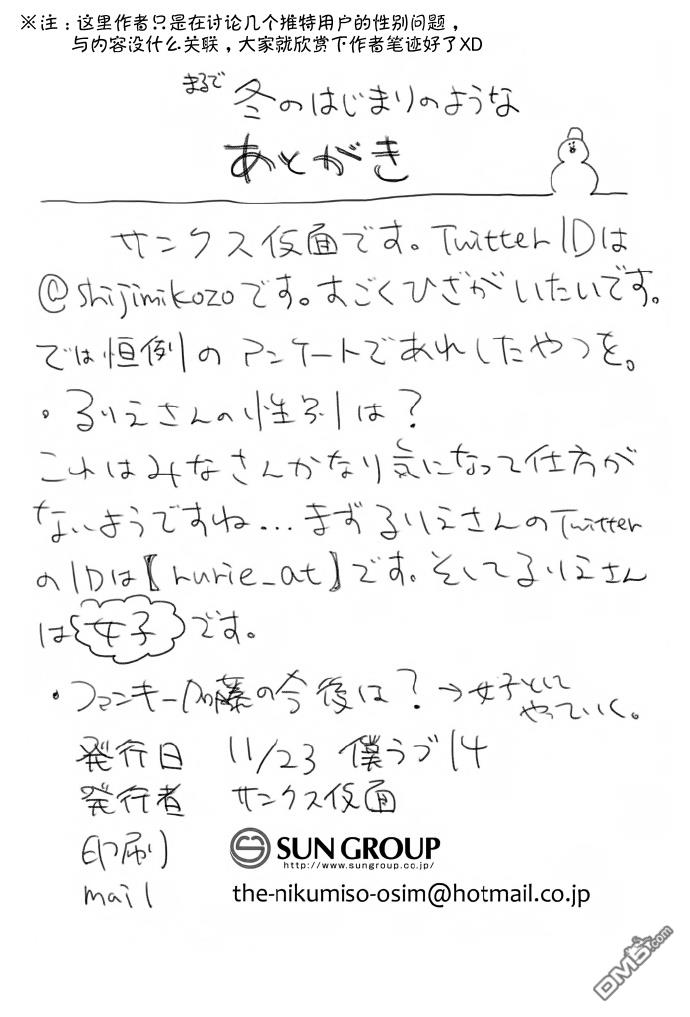 ※注：这里作者只是在讨论几个推特用户的性别问题，
与内容没什么关联，大家就欣赏下作者笔迹好了XD
まるで 冬のはじまりのような
あとがき
サンクス仮面です。Twitter IDは
@shijimikozoです。すごくひざがいたいです。
では恒例のアンケートであれしたやつを。
・るりえさんの性別は？
これはみなさんかなり気になって仕方が
ないようですね…まずるりえさんのTwitter
のIDは【rurie_at】です。そしてるりえさん
は女子です。
・ファンキー加藤の今後は？→女子として
やっていく。
発行日 11/23 僕ラブ14
発行者 サンクス仮面
印刷 SUN GROUP
http://www.sungroup.co.jp/
mail the-nikumiso-osim@hotmail.co.jp
DM5.com